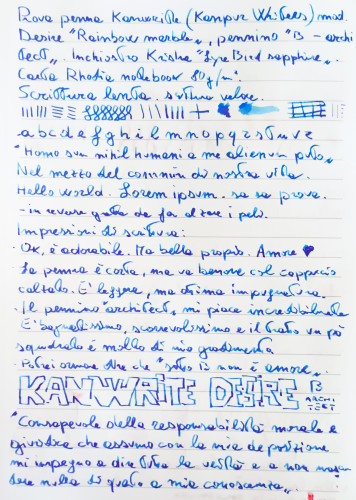 Prova penna Kanwrite (Kanpur Writers) mod.
Desire "Rainbow marble", pennino "B - archi
tect". Inchiostro Krishna "Lyre Bird sapphire".
Carta Rhodia notebook 80g/m².
Scrittura lenta. scrittura veloce.
a b c d e f g h i l m n o p q r s t u v z
"Homo sum nihil humani a me alienum puto"
Nel mezzo del cammin di nostra vita.
Hello world. Lorem ipsum. sa sa prova.
- in reverse da far alzare i peli.
Impressioni di scrittura:
- OK, è adorabile. Ma bella proprio. Amore
- La penna è corta, ma va benone col cappuccio
calzato. E' leggera, ma ottima impugnatura.
- Il pennino architect, mi piace incredibilmente
E' bagnatissimo, scorrevolissimo e il tratto un pò
squadrato è molto di mio gradimento
- Potrei ormai dire che "solo B non è amore".
KANWRITE DESIRE B
ARCHI
TECT
"Consapevole della responsabilità morale e
giuridica che assumo con la mia deposizione
mi impegno a dire tutta la verità e a non nascon
dere nulla di quanto a mia conoscenza".